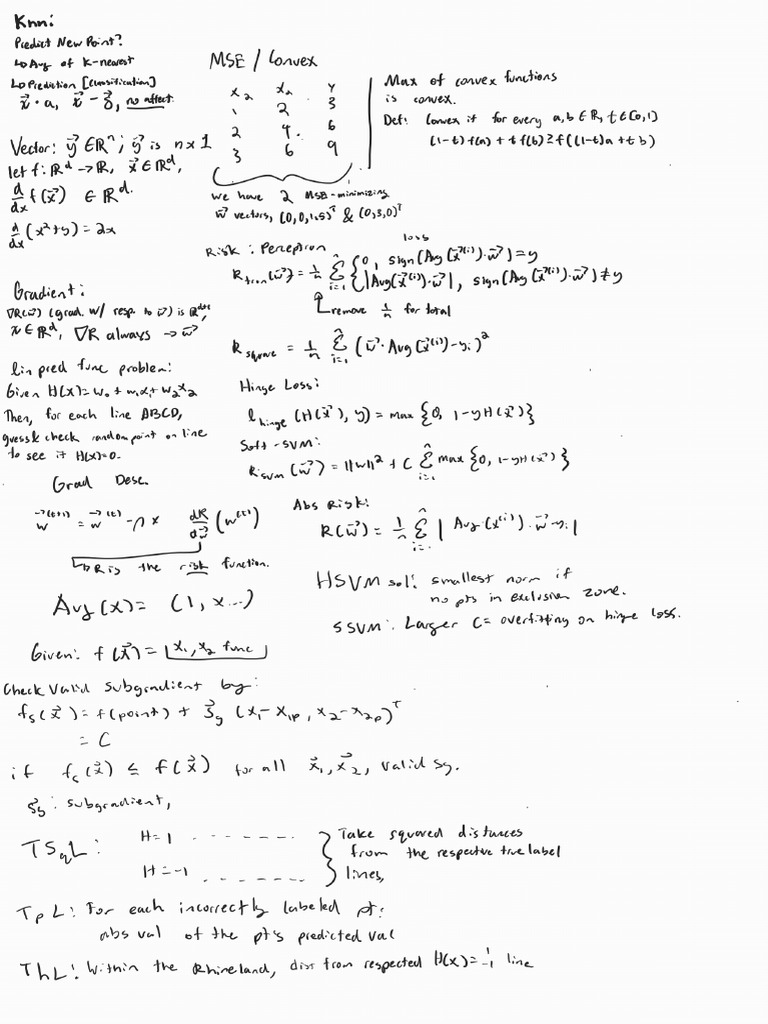 Knn:
Predict New Point?
↳Avg of K-nearest
↳Prediction [classification]
x⃗·a, x⃗ - δ⃗, no affect.
Vector: y⃗ ∈ ℝⁿ; y⃗ is n×1
let f: ℝᵈ → ℝ, x⃗ ∈ ℝᵈ,
d/dx f(x⃗) ∈ ℝᵈ.
d/dx (x²+y) = 2x
Gradient:
∇R(w⃗) (grad. w/ resp. to w⃗) is ℝᵈ⁺¹,
x ∈ ℝᵈ, ∇R always → w⃗
lin pred func problem:
Given H(x) = w₀ + w₁x₁ + w₂x₂
Then, for each line ABCD,
guess & check random point on line
to see if H(x)=0.
Grad Desc.
w⃗⁽ᵗ⁺¹⁾ = w⃗⁽ᵗ⁾ - η × dR/dw⃗ (w⁽ᵗ⁾)
↳R is the risk function.
Aug(x) = (1, x...)
Given: f(x⃗) = x₁, x₂ func
MSE / Convex
x₂ x₂ y
1 2 3
2 4 6
3 6 9
we have 2 MSE-minimizing
w⃗ vectors, (0,0,1.5)ᵀ & (0,3,0)ᵀ
Max of convex functions
is convex.
Def: Convex if for every a,b ∈ ℝ, t ∈ [0,1]
(1-t)f(a) + t f(b) ≥ f((1-t)a + t b)
Risk: Perceptron
loss
R_tron(w⃗) = 1/n Σⁿᵢ₌₁ { 0, sign(Aug(x⃗⁽ⁱ⁾)·w⃗) = y
|Aug(x⃗⁽ⁱ⁾)·w⃗|, sign(Aug(x⃗⁽ⁱ⁾)·w⃗) ≠ y
↳remove 1/n for total
R_square = 1/n Σⁿᵢ₌₁ (w⃗·Aug(x⃗⁽ⁱ⁾) - yᵢ)²
Hinge Loss:
l_hinge (H(x⃗), y) = max {0, 1-yH(x⃗)}
Soft-SVM:
R_svm(w⃗) = ||w||² + C Σⁿᵢ₌₁ max {0, 1-yH(x⃗)}
Abs Risk:
R(w⃗) = 1/n Σⁿᵢ₌₁ | Aug(x⁽ⁱ⁾)·w⃗ - yᵢ|
HSVM sol: smallest norm if
no pts in exclusion zone.
SSVM: Larger C = overfitting on hinge loss.
Check valid subgradient by:
fₛ(x⃗) = f(point) + S⃗g (x₁-x₁p, x₂-x₂p)ᵀ
= C
if fₛ(x⃗) ≤ f(x⃗) for all x⃗₁, x⃗₂, valid Sg.
S⃗g: subgradient,
TSqL: H=1 - - - - - -
H=-1 - - - - - -
Take squared distances
from the respective true label
lines,
TpL: For each incorrectly labeled pt:
abs val of the pt's predicted val
ThL: Within the Rhineland, dist from respected H(x) = 1/-1 line